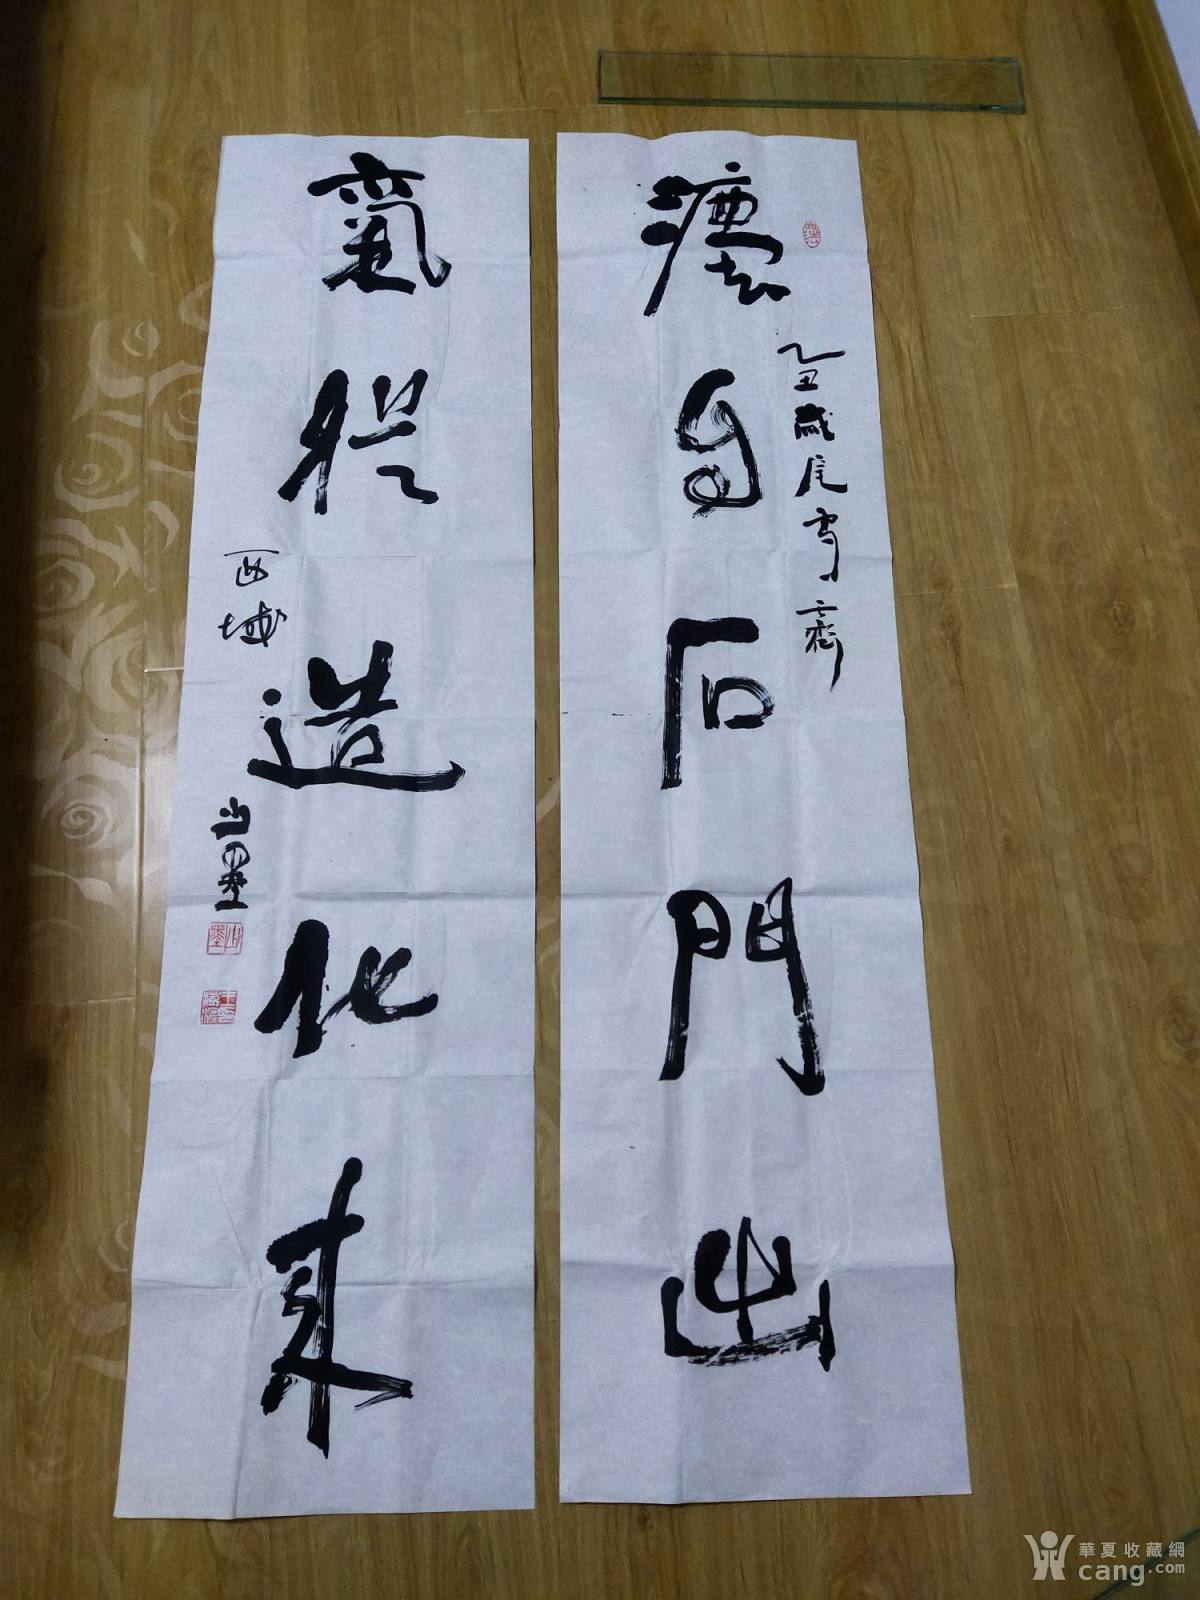 瀍自石門出
乙丑歲尾雪霽
氣從造化來
西域
山墨
華夏收藏網
cang.com